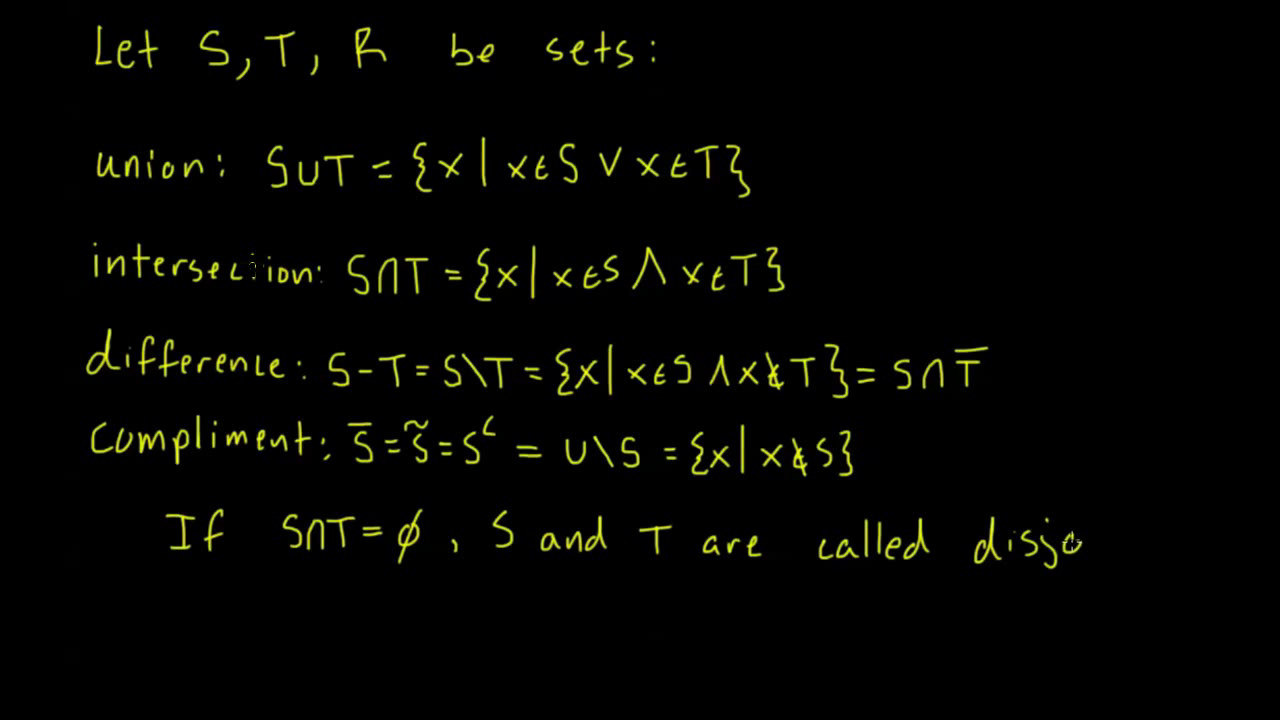 Let S, T, R be sets:
union: S∪T = {x | x∈S ∨ x∈T}
intersection: S∩T = {x | x∈S ∧ x∈T}
difference: S-T = S\T = {x | x∈S ∧ x∉T} = S∩T̅
Compliment: S̅ = S̃ = Sᶜ = U\S = {x | x∉S}
If S∩T = ∅, S and T are called disjo